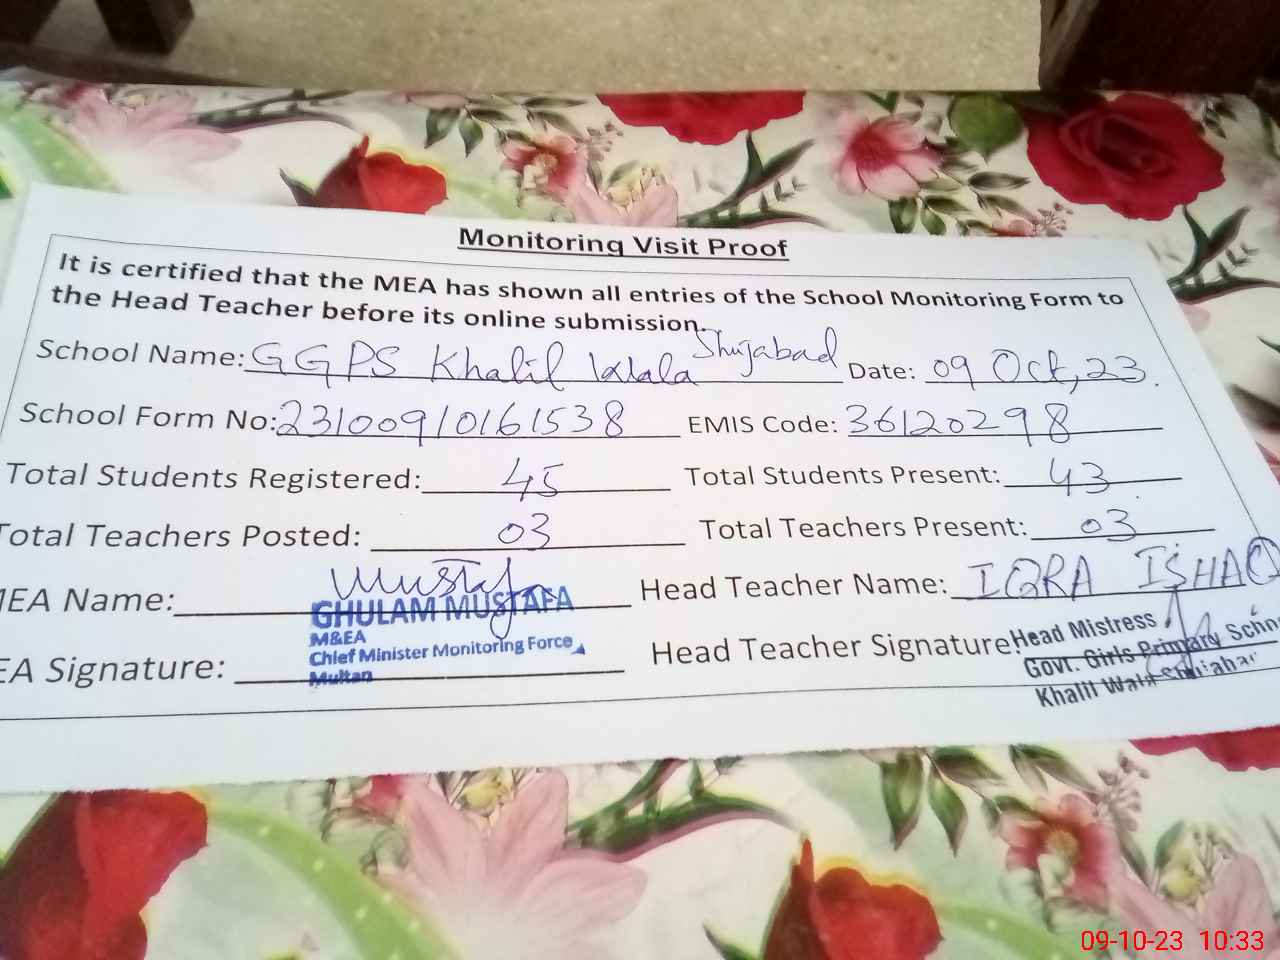 Monitoring Visit Proof
It is certified that the MEA has shown all entries of the School Monitoring Form to
the Head Teacher before its online submission.
School Name: GGPS Khalil Wala Shujabad Date: 09 Oct, 23.
School Form No: 23100910161538 EMIS Code: 36120298
Total Students Registered: 45 Total Students Present: 43
Total Teachers Posted: 03 Total Teachers Present: 03
MEA Name: Mustafa Head Teacher Name: IQRA ISHAQ
GHULAM MUSTAFA
M&EA
Chief Minister Monitoring Force
Multan
EA Signature: Head Teacher Signature:
Head Mistress
Govt. Girls Primary School
Khalil Wala
09-10-23 10:33